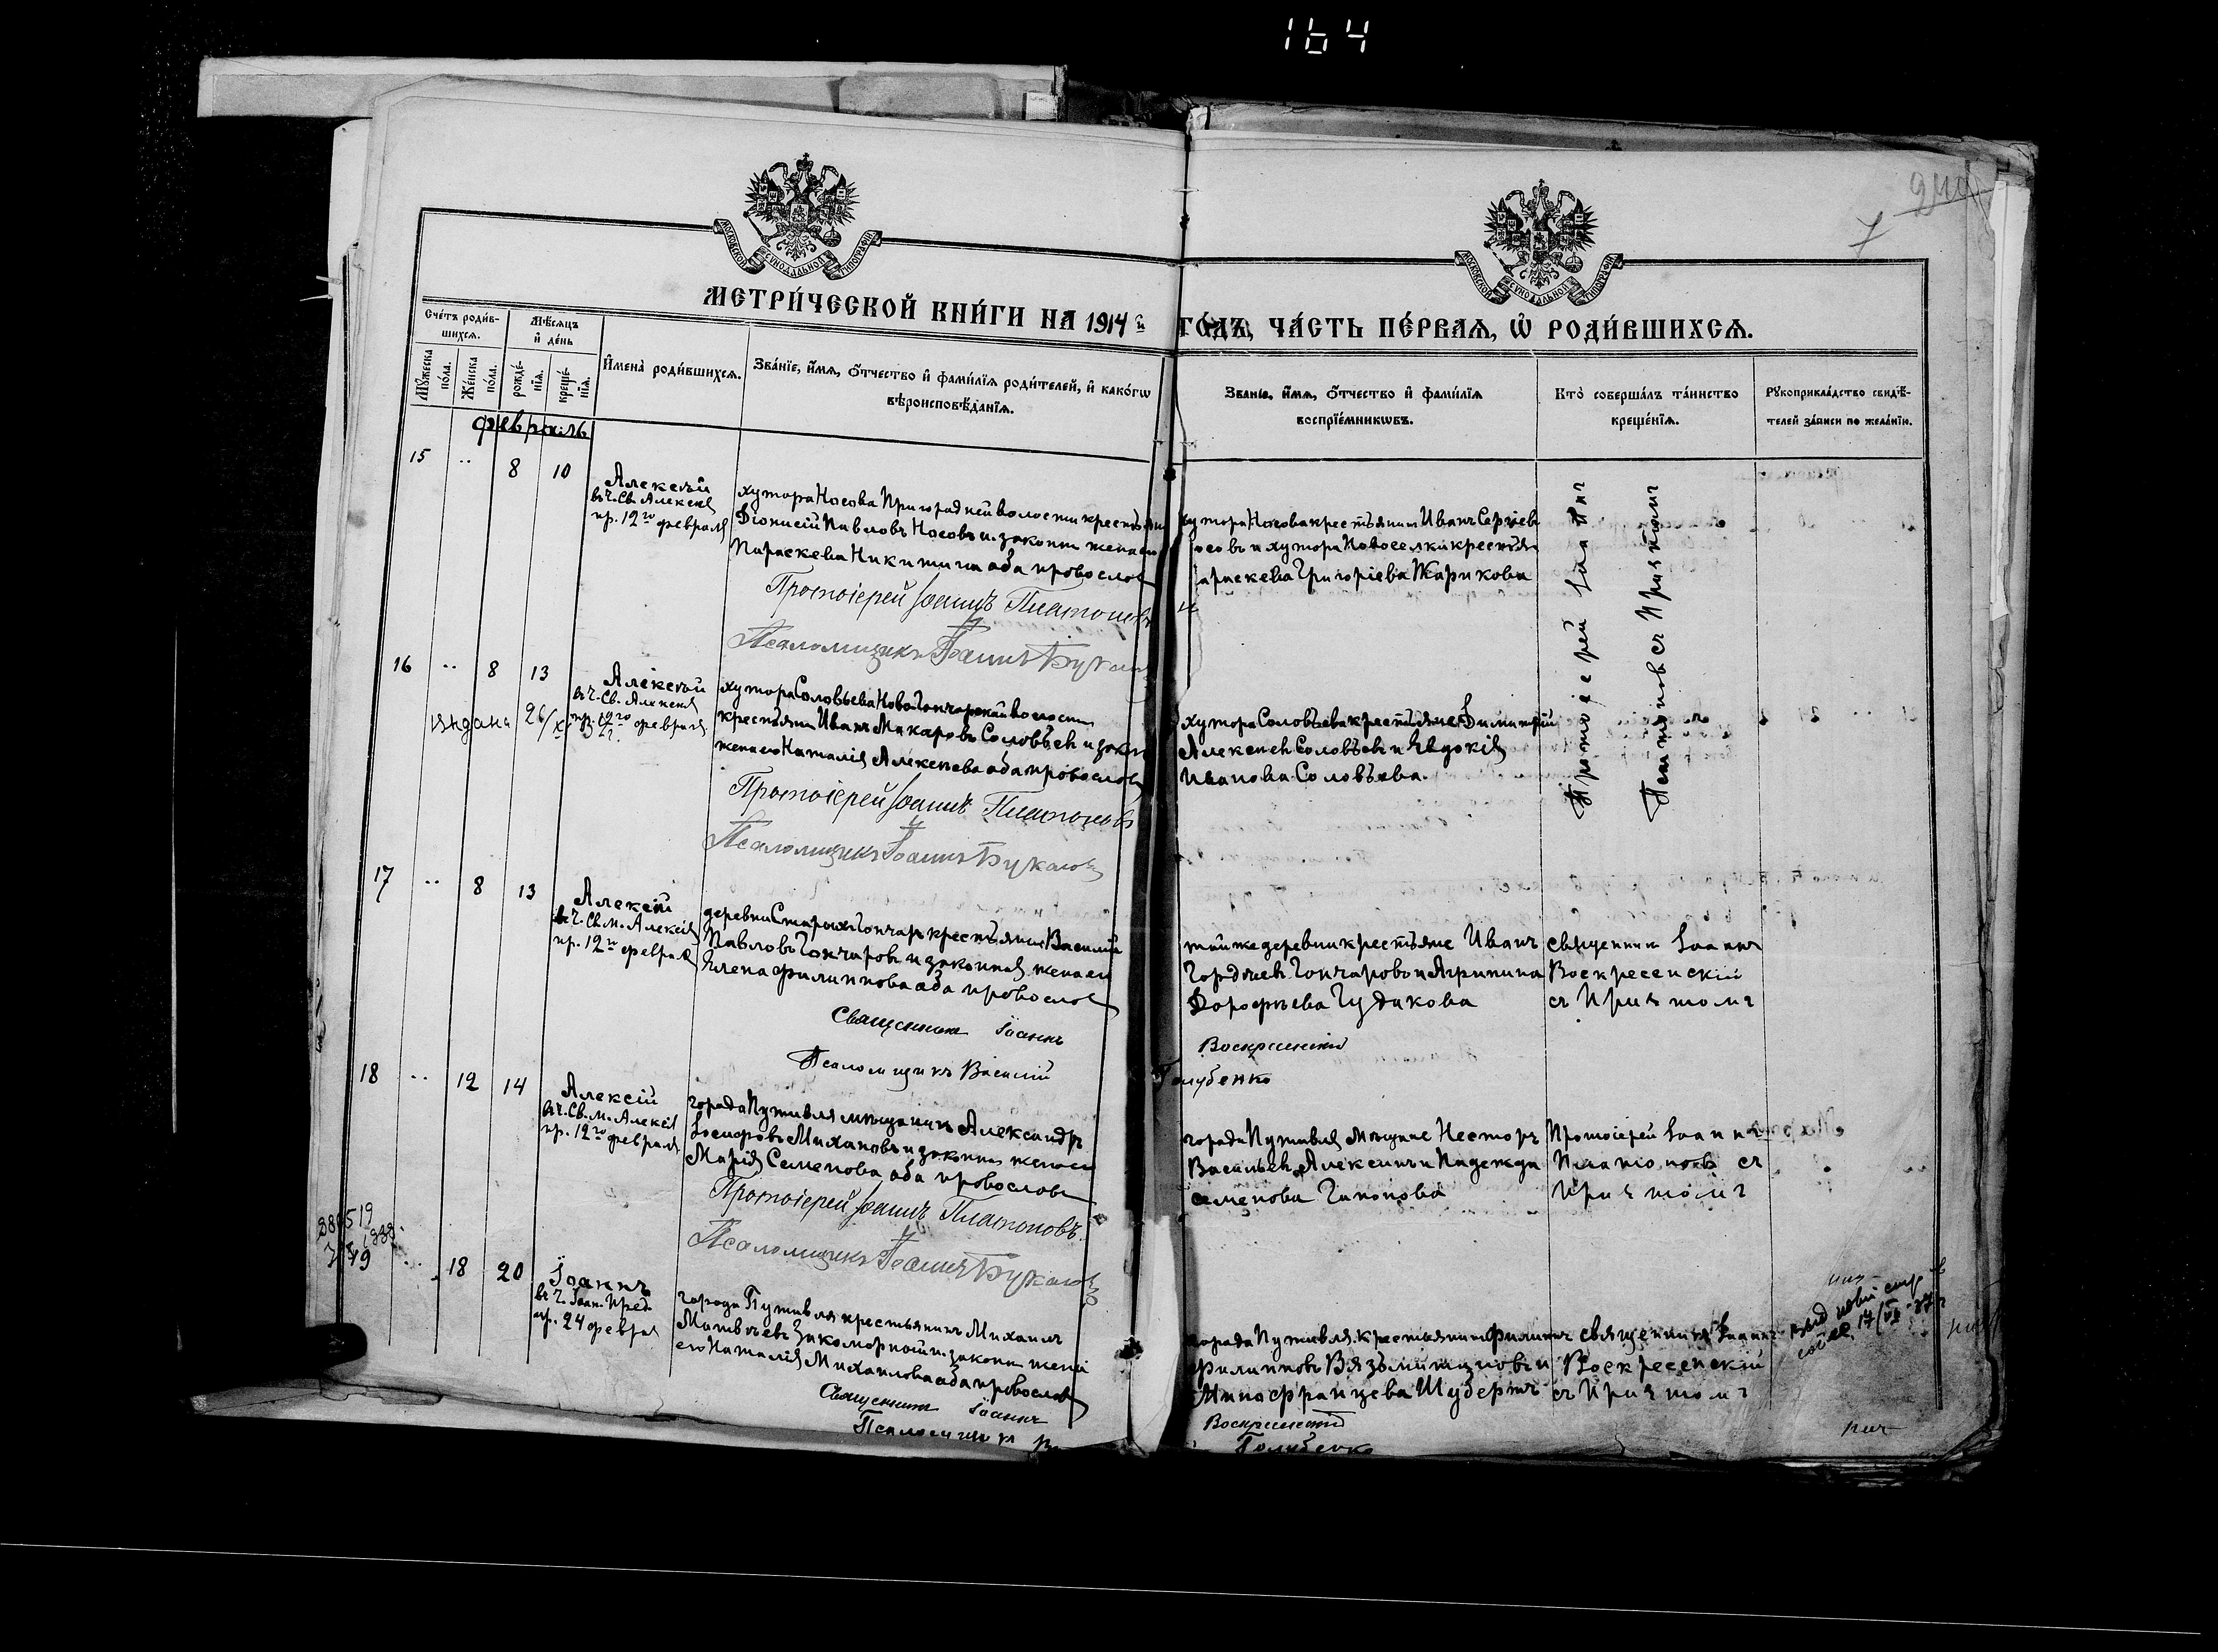 164
244
7
МОСКОВСКОЙ СѴНОДАЛЬНОЙ ТИПОГРАФІИ
МОСКОВСКОЙ СѴНОДАЛЬНОЙ ТИПОГРАФІИ
МЕТРИ́ЧЕСКОЙ КНИ́ГИ НА 1914 й ГО́ДЪ, ЧА́СТЬ ПЕ́РВАЯ, Ѡ РОДИ́ВШИХСЯ.
Сче́тъ роди́в-
шихся.
Мѣ́сяцъ
и҆ де́нь
Мꙋ́жеска
по́ла.
Же́нска
по́ла.
рожде́-
нїѧ.
креще́-
нїѧ.
И҆мена̀ роди́вшихсѧ.
Зва́нїе, и҆́мѧ, ѻ҆́тчество и҆ фами́лїѧ роди́телей, и҆ како́гѡ
вѣроисповѣ́данїѧ.
Зва́нїе, и҆́мѧ, ѻ҆́тчество и҆ фами́лїѧ
воспрїе́мникѡвъ.
Кто̀ соверша́лъ та́инство
креще́нїѧ.
Рꙋкоприкла́дство свидѣ́-
телей за́писи по жела́нїю.
Февраль
15 .. 8 10
Алексѣй
въ ч. Св. Алексея
пр. 12го февраля
хутора Носова Пригородней волости крестьянин
Діонисій Павловъ Носовъ и законн жена его
Параскева Никитина оба православ
Протоіерей Іоаннъ Платоновъ
Псаломщикъ Іоаннъ Букалов
хутора Носова крестьянин Иванъ Сергіев
осовъ и хутора Новоселки крестьян
араскева Григоріева Жарикова
Протоіерей Іоаннъ
Платоновъ съ Причтомъ
16 .. 8 13
Алексѣй
въ ч. Св. Алексея
пр. 12го февраля
26/X
хутора Соловьева Ново Гончарской волости
крестьянин Иванъ Макаровъ Соловьев и закон
жена его Наталія Алексеева оба православ
Протоіерей Іоаннъ Платоновъ
Псаломщикъ Іоаннъ Букалов
хутора Соловьева крестьяне Димитрій
Алексеев Соловьевъ и Евдокія
Иванова Соловьева
17 .. 8 13
Алексій
въ ч. Св. м. Алексія
пр. 12го февраля
деревни Старых Гончар крестьянин Василій
Павловъ Гончаровъ и законная жена его
Елена Филиппова оба православ
Священник Іоаннъ Воскресенскій
Псаломщикъ Василій Голубенко
той же деревни крестьяне Иванъ
Гордеев Гончаровъ и Агрипина
Дорофѣева Гудакова
Священник Іоаннъ
Воскресенскій
съ Причтомъ
18 .. 12 14
Алексій
въ ч. Св. м. Алексія
пр. 12го февраля
города Путивля мѣщанинъ Александръ
Іосифовъ Михановъ и законн жена его
Марія Семенова оба православ
Протоіерей Іоаннъ Платоновъ.
Псаломщикъ Іоаннъ Букалов
города Путивля мѣщане Несторъ
Васильев Алексинъ и Надежда
Семенова Гапонова
Протоіерей Іоаннъ
Платоновъ съ
Причтомъ
19 .. 18 20
Іоаннъ
въ ч. Іоан. Пред.
пр. 24 февраля
города Путивля крестьянинъ Михаилъ
Матвѣевъ Закоморной и законн жена
его Наталія Михаилова оба православ
Священник Іоаннъ Воскресенскій
Псаломщикъ Голубенко
города Путивля крестьянин Филиппъ
Филипповъ Вязьмитиновъ и
Анна Францева Шубертъ
священник Іоаннъ
Воскресенскій
съ Причтомъ
17/VI - 37